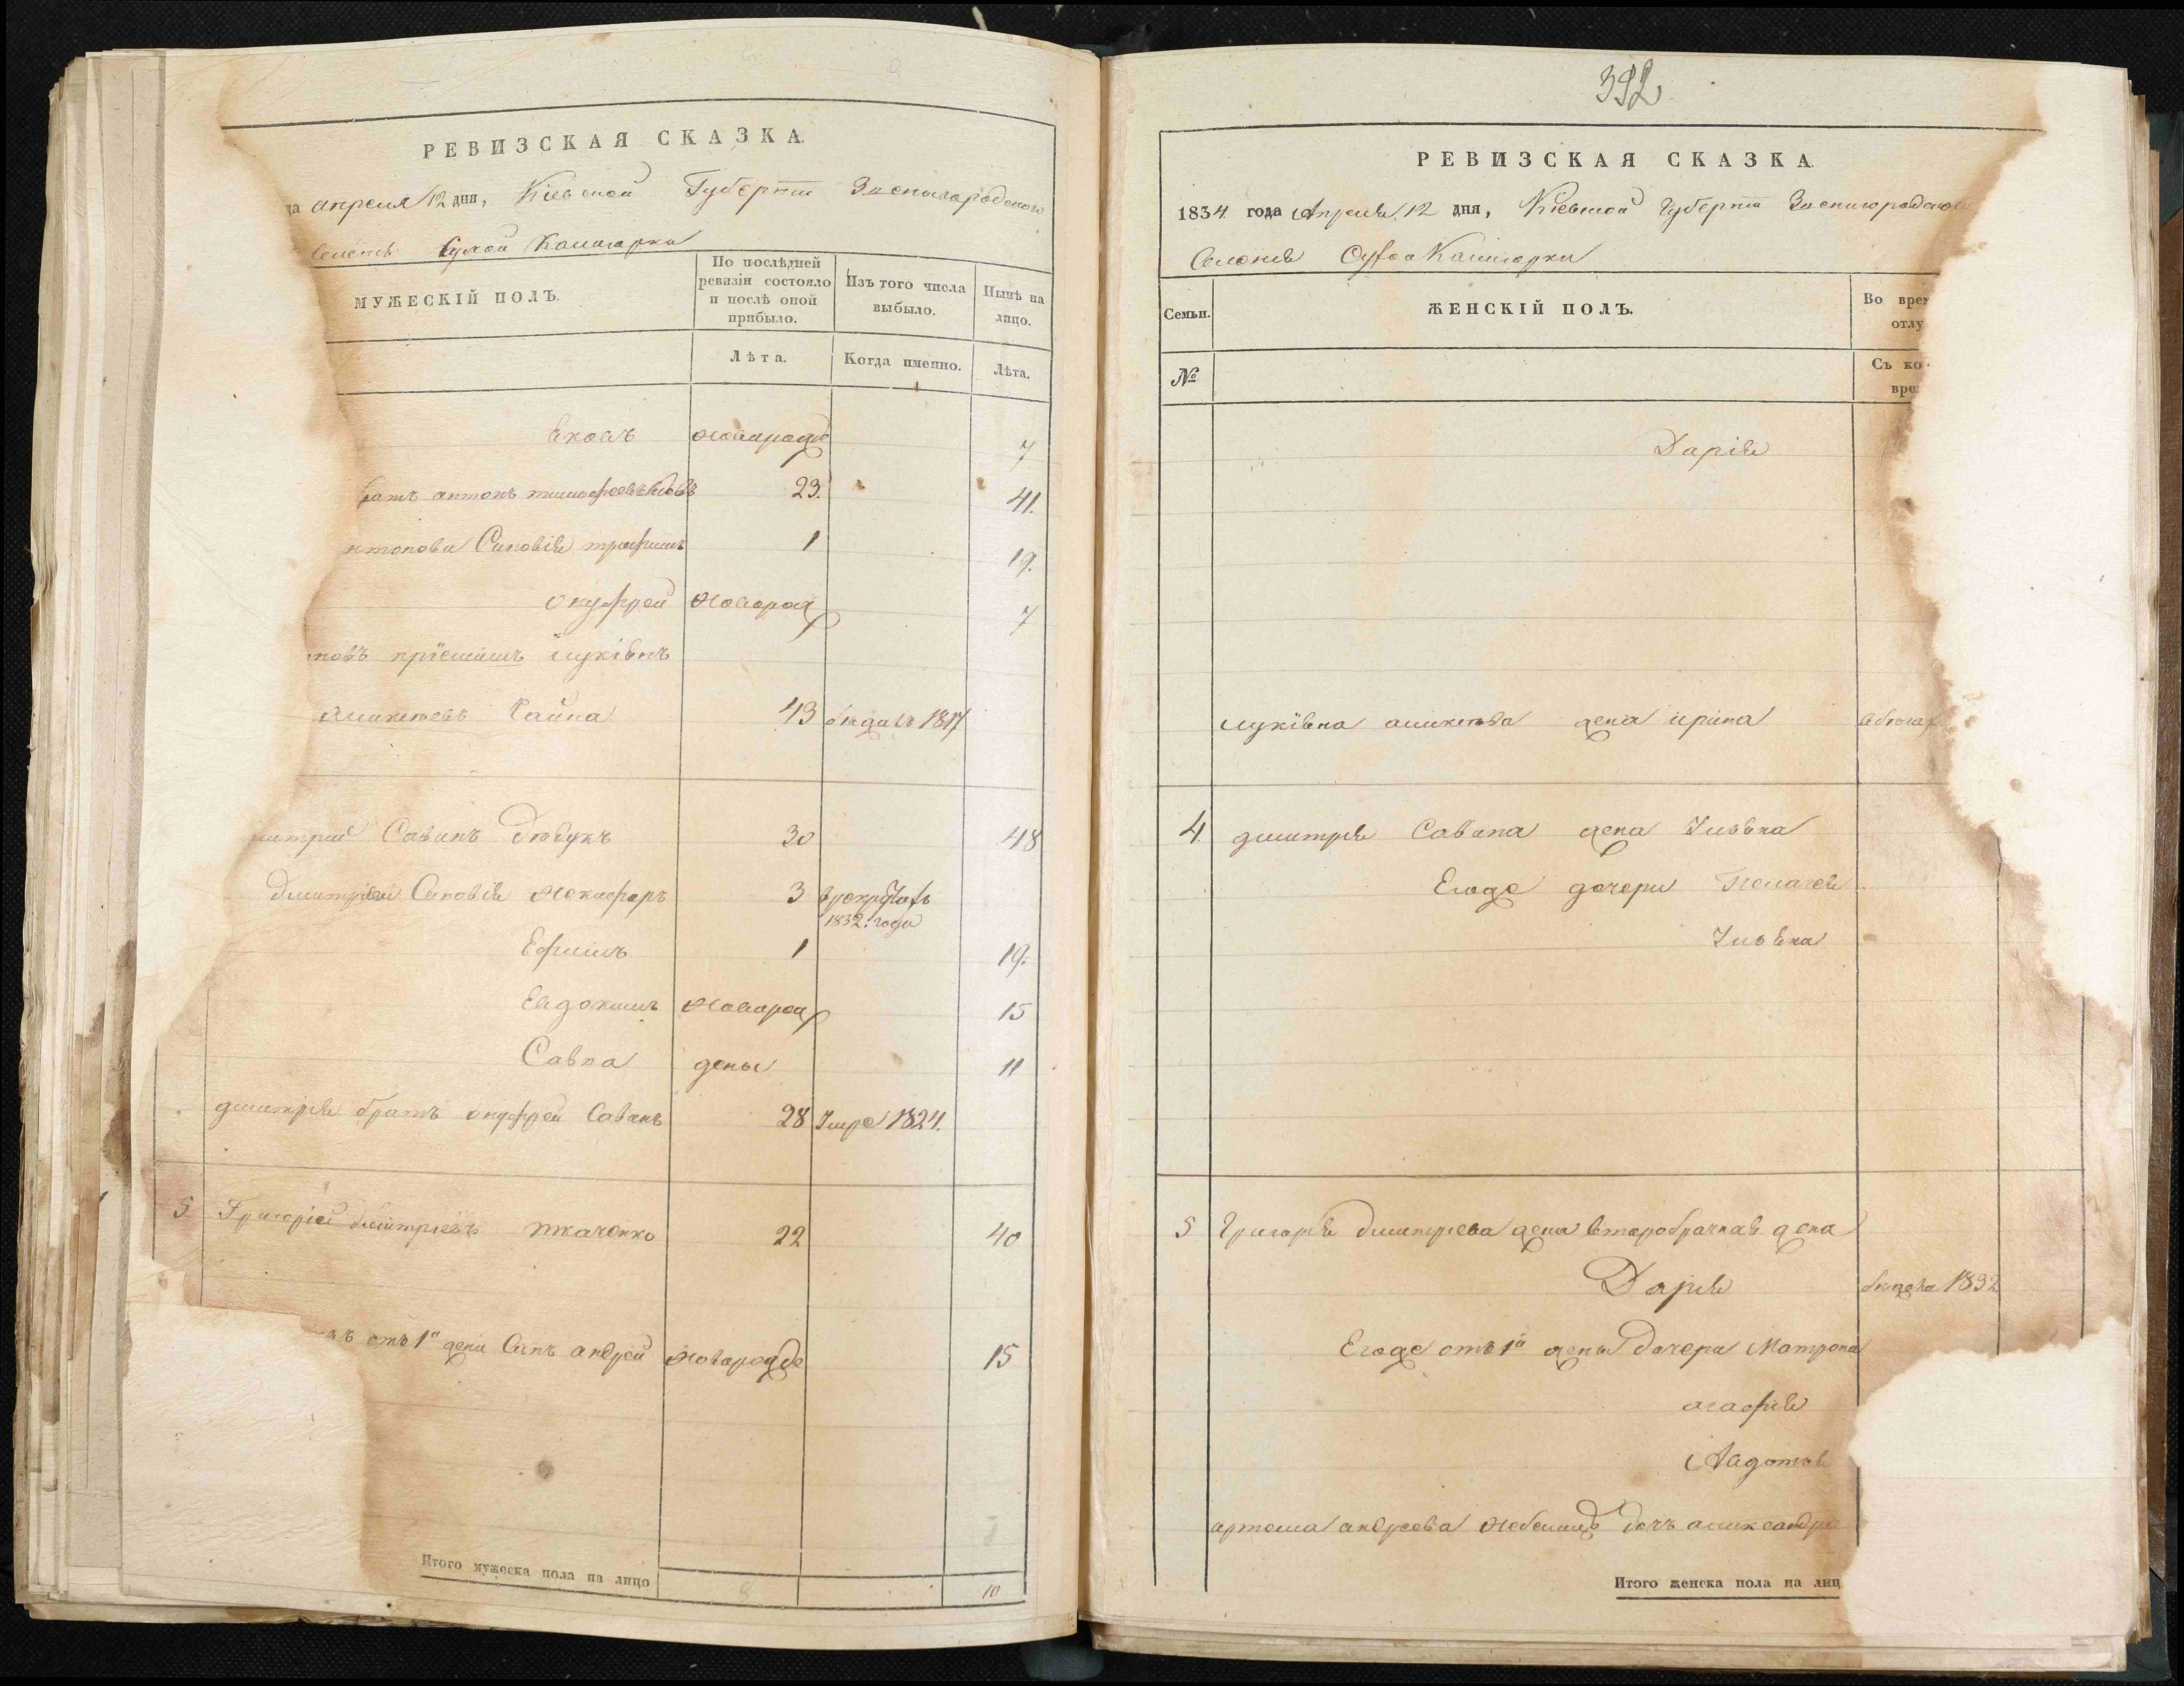 РЕВИЗСКАЯ СКАЗКА.
да апреля 12 дня, Кіевской Губерніи Звенигородского
Селенія Сухой Калигорки
МУЖЕСКІЙ ПОЛЪ.
По послѣдней ревизіи состояло и послѣ оной прибыло.
Изъ того числа выбыло.
Нынѣ на лицо.
Лѣта.
Когда именно.
Лѣта.
новарожде 7
братъ антонъ 23. 41.
нтонова Синовія трофимъ 1 19.
онуфрей новорож 7
43 1817
митрій Савинъ 30 48
Дмитрія Синовія некифоръ 3 в рекрутахъ
1832. года
Ефимъ 1 19.
Евдокимъ новорож 15
Савка 11
дмитрія братъ онуфрей Савинъ 28 Умре 1824.
5 Григорій дмитріевъ ткаченко 22 40
отъ 1й жени Синъ андрей новарожде 15
Итого мужеска пола на лицо 10
392
РЕВИЗСКАЯ СКАЗКА.
1834 года Апреля 12 дня, Кіевской Губерніи Звенигородско
Селенія Сухой Калигорки
Семьи.
ЖЕНСКІЙ ПОЛЪ.
Во врем
отлу
№
Съ ко-
вре
Дарія
жена ирина
4. дмитрія Савина жена
Егоже дочери
5 Григорія дмитріева жена второбрачная жена
Дарія 1832
Егоже отъ 1й жены дочери Матрона
агафія
Авдотія
артема андреева дочь александра
Итого женска пола на лиц